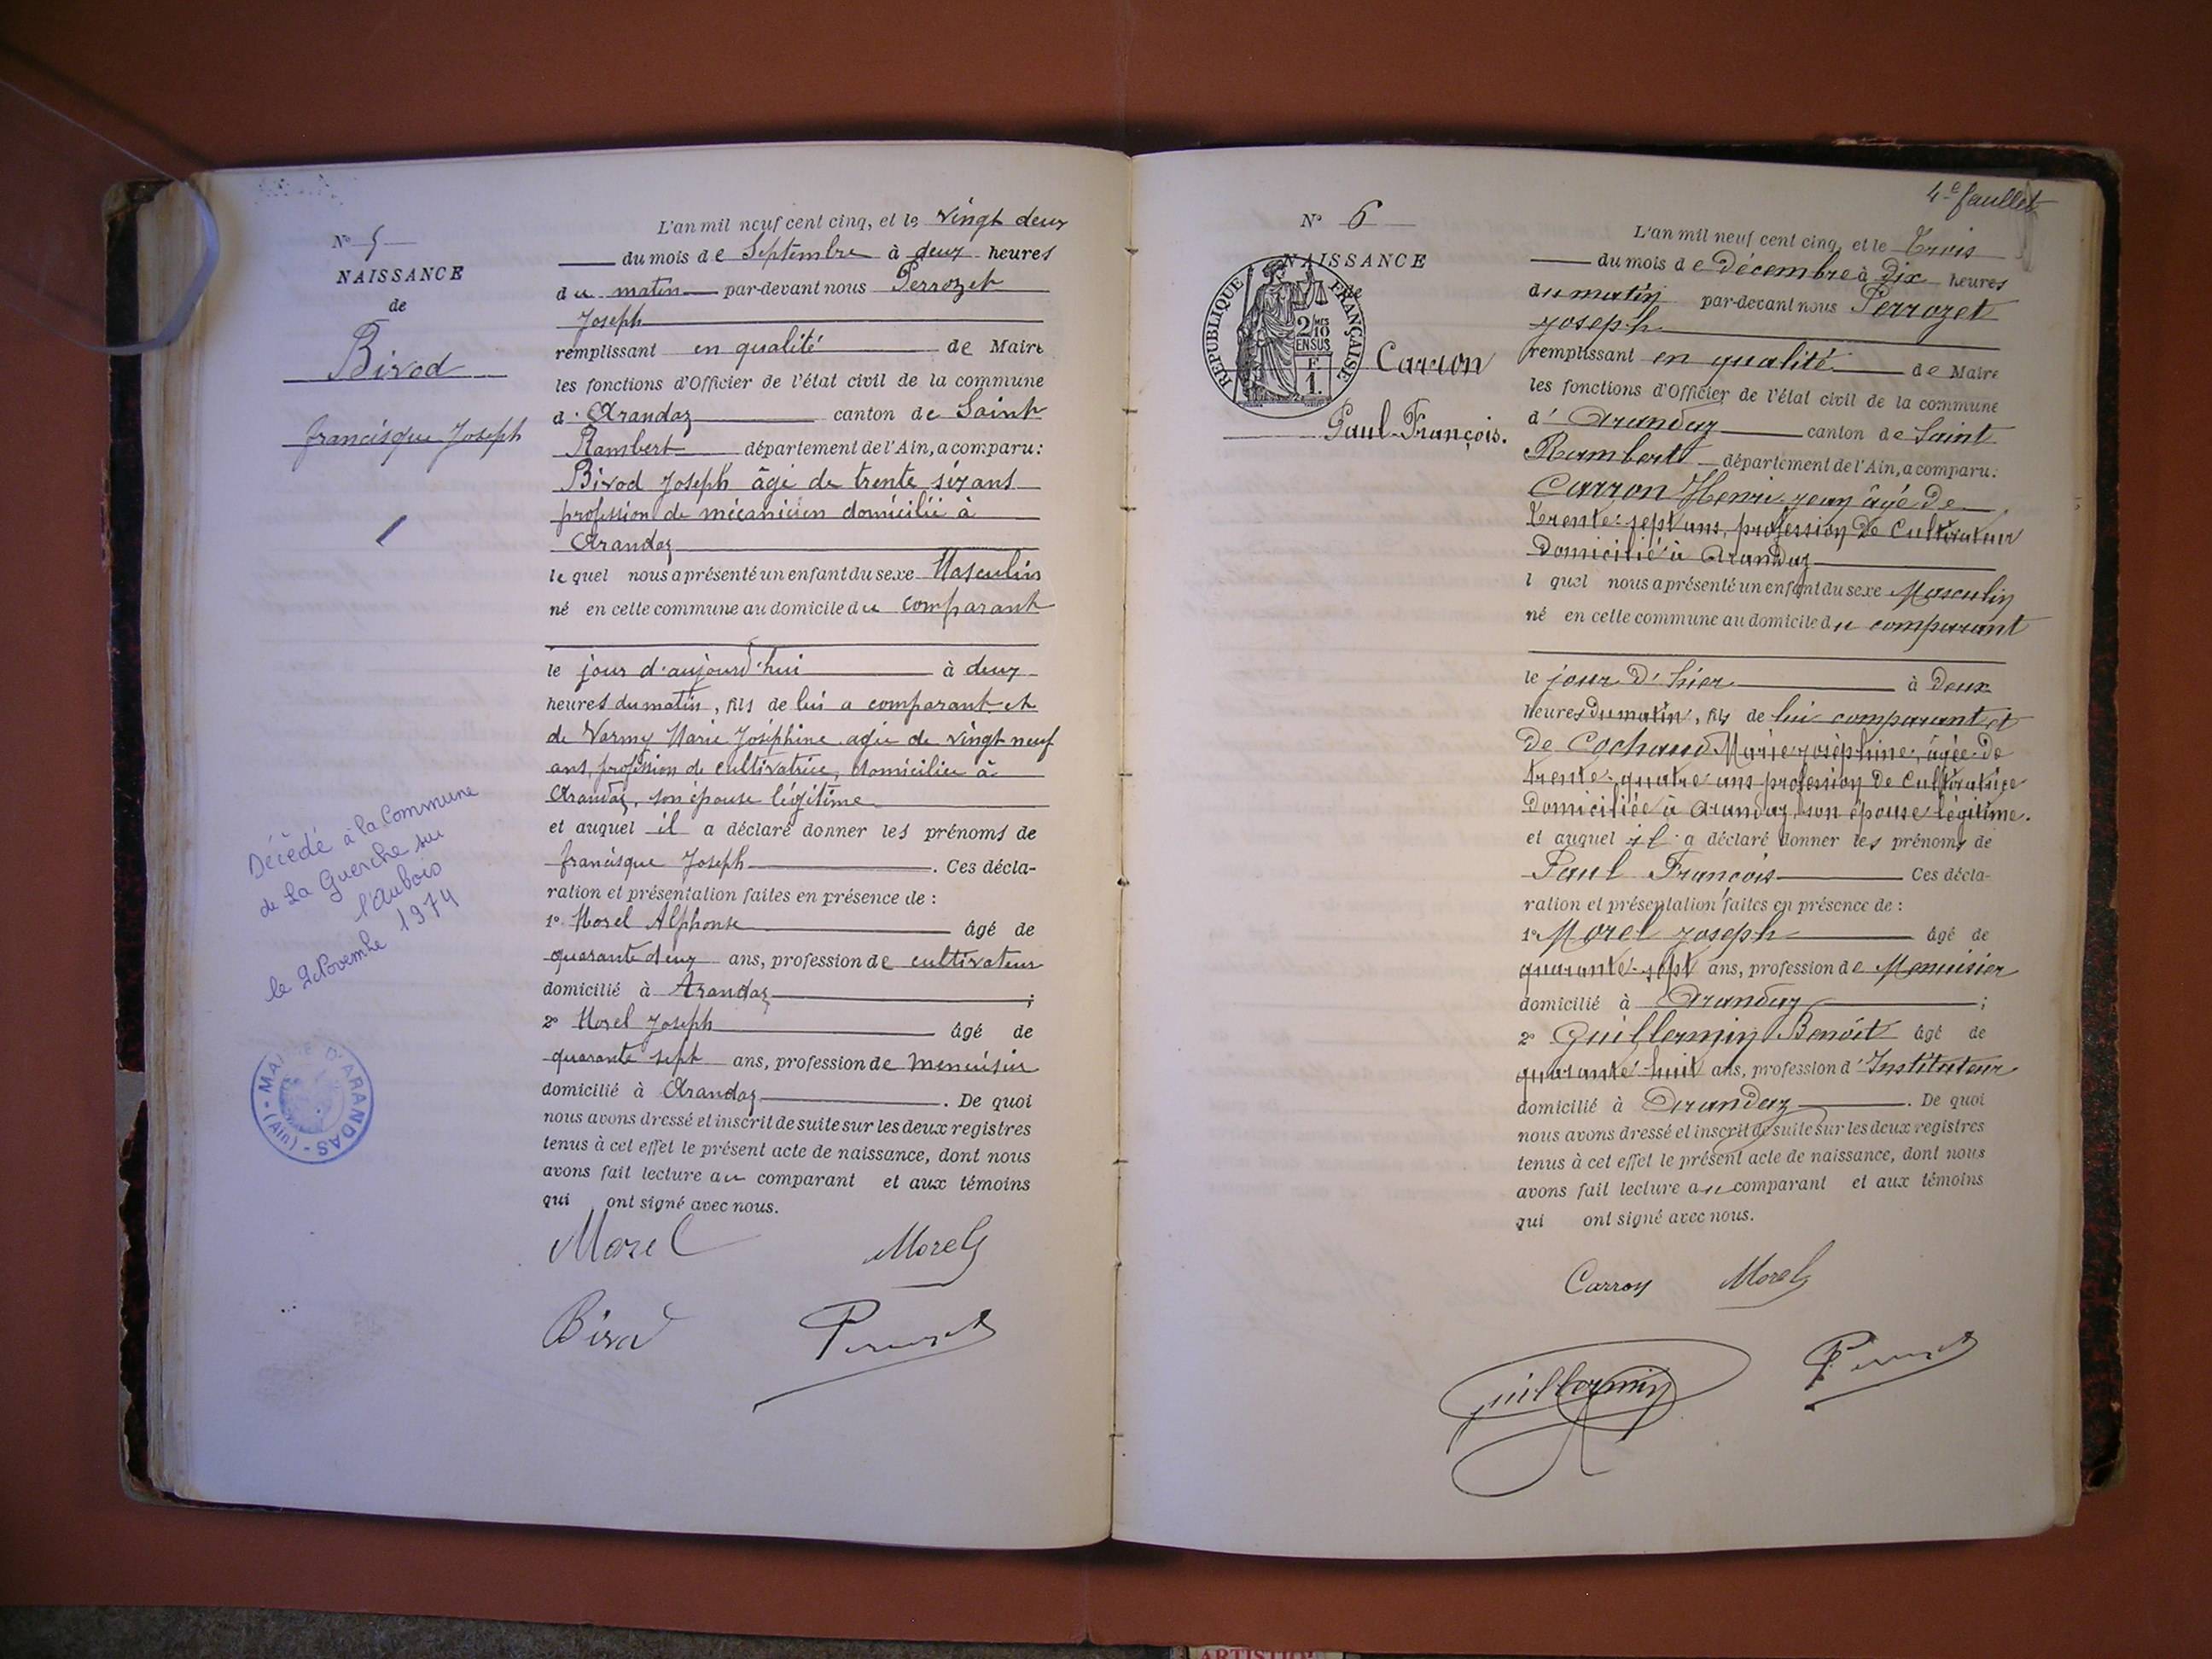 N° 5
NAISSANCE
de
Bivod
francisque Joseph
Décédé à la Commune
de La Guerche sur
l'Aubois
le 2 Novembre 1974
MAIRIE D'ARANDAS - (Ain) -
L'an mil neuf cent cinq, et le vingt deux
du mois de Septembre à deux heures
du matin par-devant nous Perrozet
Joseph
remplissant en qualité de Maire
les fonctions d'Officier de l'état civil de la commune
d'Arandaz canton de Saint
Rambert département de l'Ain, a comparu:
Bivod Joseph âgé de trente six ans
profession de mécanicien domicilié à
Arandaz
le quel nous a présenté un enfant du sexe Masculin
né en cette commune au domicile du comparant
le jour d'aujourd'hui à deux
heures du matin, fils de lui a comparant et
de Varmy Marie Joséphine agée de vingt neuf
ans, profession de cultivatrice, domiciliée à
Arandaz, son épouse légitime
et auquel il a déclaré donner les prénoms de
francisque Joseph. Ces décla-
ration et présentation faites en présence de :
1° Morel Alphonse âgé de
quarante deux ans, profession de cultivateur
domicilié à Arandaz ;
2° Morel Joseph âgé de
quarante sept ans, profession de menuisier
domicilié à Arandaz. De quoi
nous avons dressé et inscrit de suite sur les deux registres
tenus à cet effet le présent acte de naissance, dont nous
avons fait lecture au comparant et aux témoins
qui ont signé avec nous.
Morel Morel
Bivod Perrozet
4e feuillet
N° 6
NAISSANCE
de
REPUBLIQUE FRANÇAISE
2/10 MES
EN SUS
F
1.
Carron
Paul-François.
L'an mil neuf cent cinq, et le Trois
du mois de Décembre à Dix heures
du matin par-devant nous Perrozet
Joseph
remplissant en qualité de Maire
les fonctions d'Officier de l'état civil de la commune
d'Arandaz canton de Saint
Rambert département de l'Ain, a comparu:
Carron Henri Jean âgé de
trente-sept ans, profession de Cultivateur
Domicilié à Arandaz
l quel nous a présenté un enfant du sexe Masculin
né en cette commune au domicile du comparant
le jour D'hier à Deux
heures Du matin, fils de lui comparant et
De Cochaud Marie Joséphine, âgée De
trente-quatre ans profession De Cultivatrice
Domiciliée à Arandaz, son épouse légitime.
et auquel il a déclaré donner les prénoms de
Paul François Ces décla-
ration et présentation faites en présence de :
1° Morel Joseph âgé de
quarante-sept ans, profession de Menuisier
domicilié à Arandaz ;
2° Guillermin Benoît âgé de
quarante-huit ans, profession d'Instituteur
domicilié à Arandaz. De quoi
nous avons dressé et inscrit de suite sur les deux registres
tenus à cet effet le présent acte de naissance, dont nous
avons fait lecture au comparant et aux témoins
qui ont signé avec nous.
Carron Morel
Guillermin Perrozet